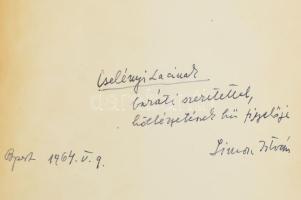 Cselényi Lacinak
baráti szeretettel,
költészetének hű figyelője
Simon István
Bpest 1964. V. 9.